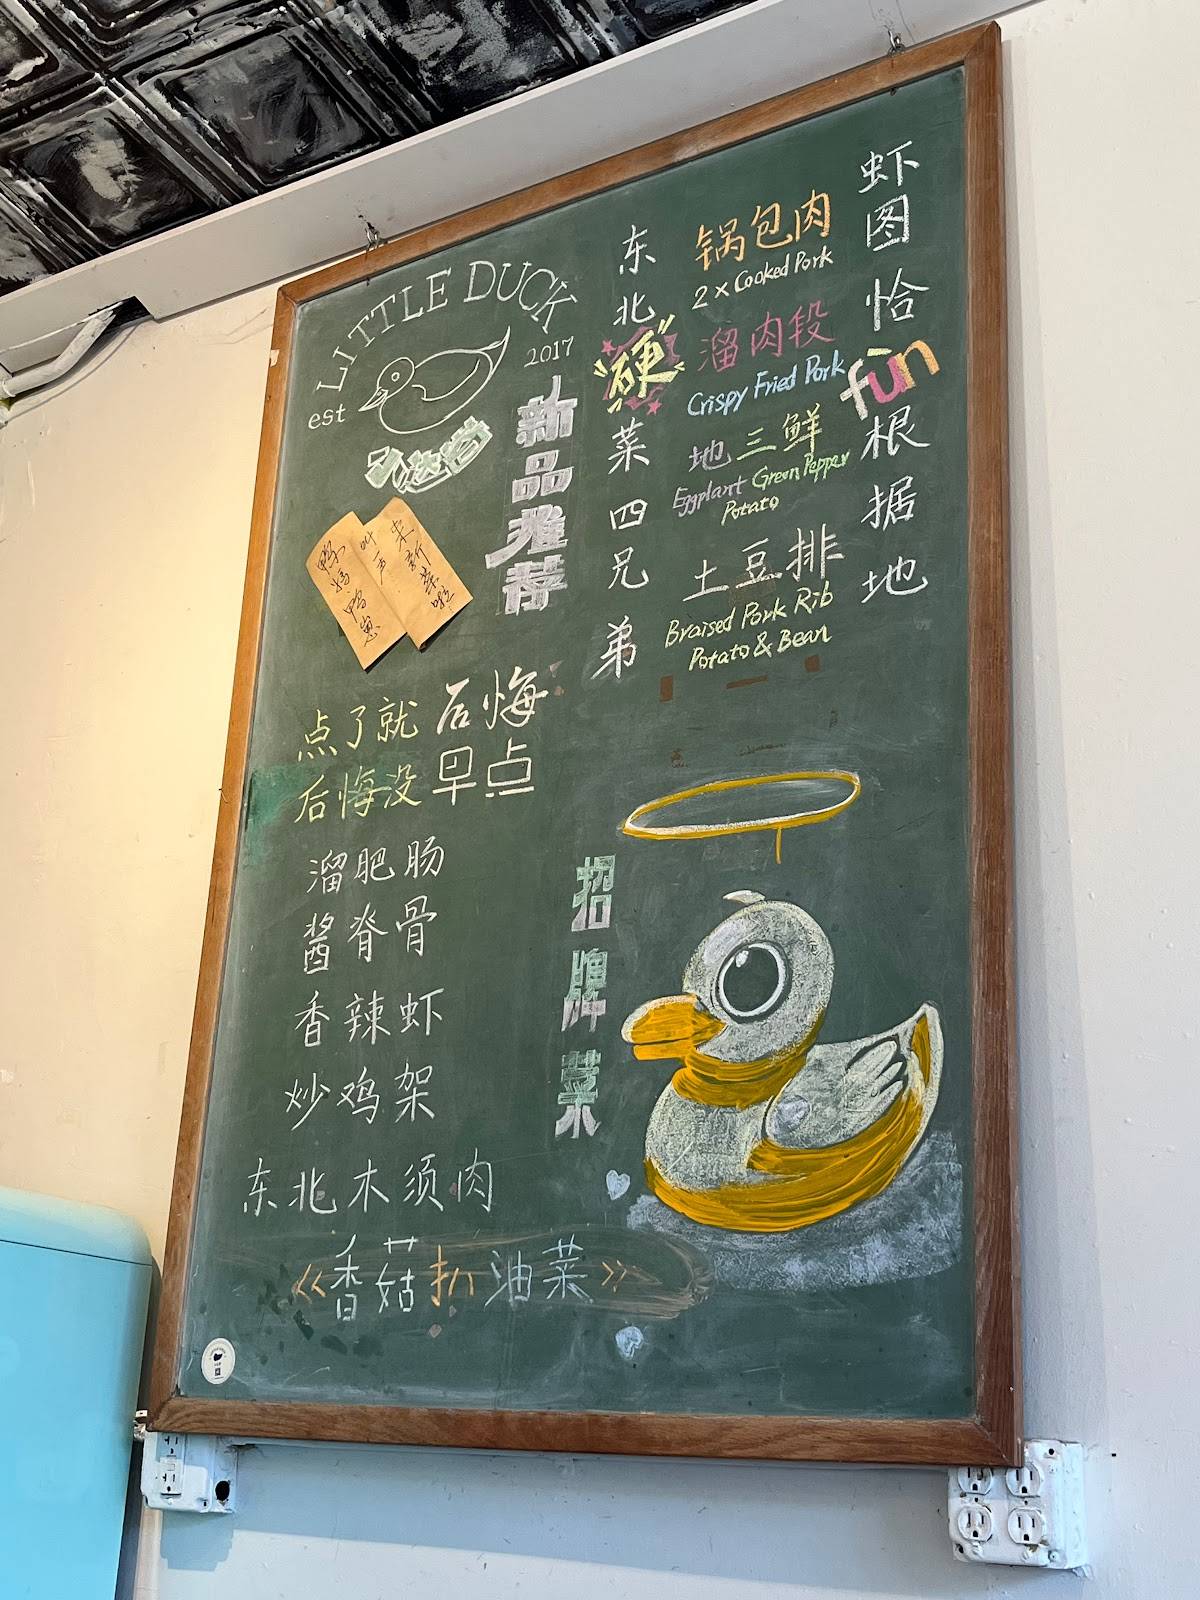 LITTLE DUCK
est
2017
新品推荐
来新菜啦
叫一声
鸭妈鸭崽
东北"硬"菜四兄弟
锅包肉
2×Cooked Pork
溜肉段
Crispy Fried Pork
地三鲜
Eggplant Green Pepper
Potato
土豆排
Braised Pork Rib
Potato & Bean
虾图恰fùn根据地
点了就后悔
后悔没早点
溜肥肠
酱脊骨
香辣虾
炒鸡架
东北木须肉
《香菇扒油菜》
招牌菜